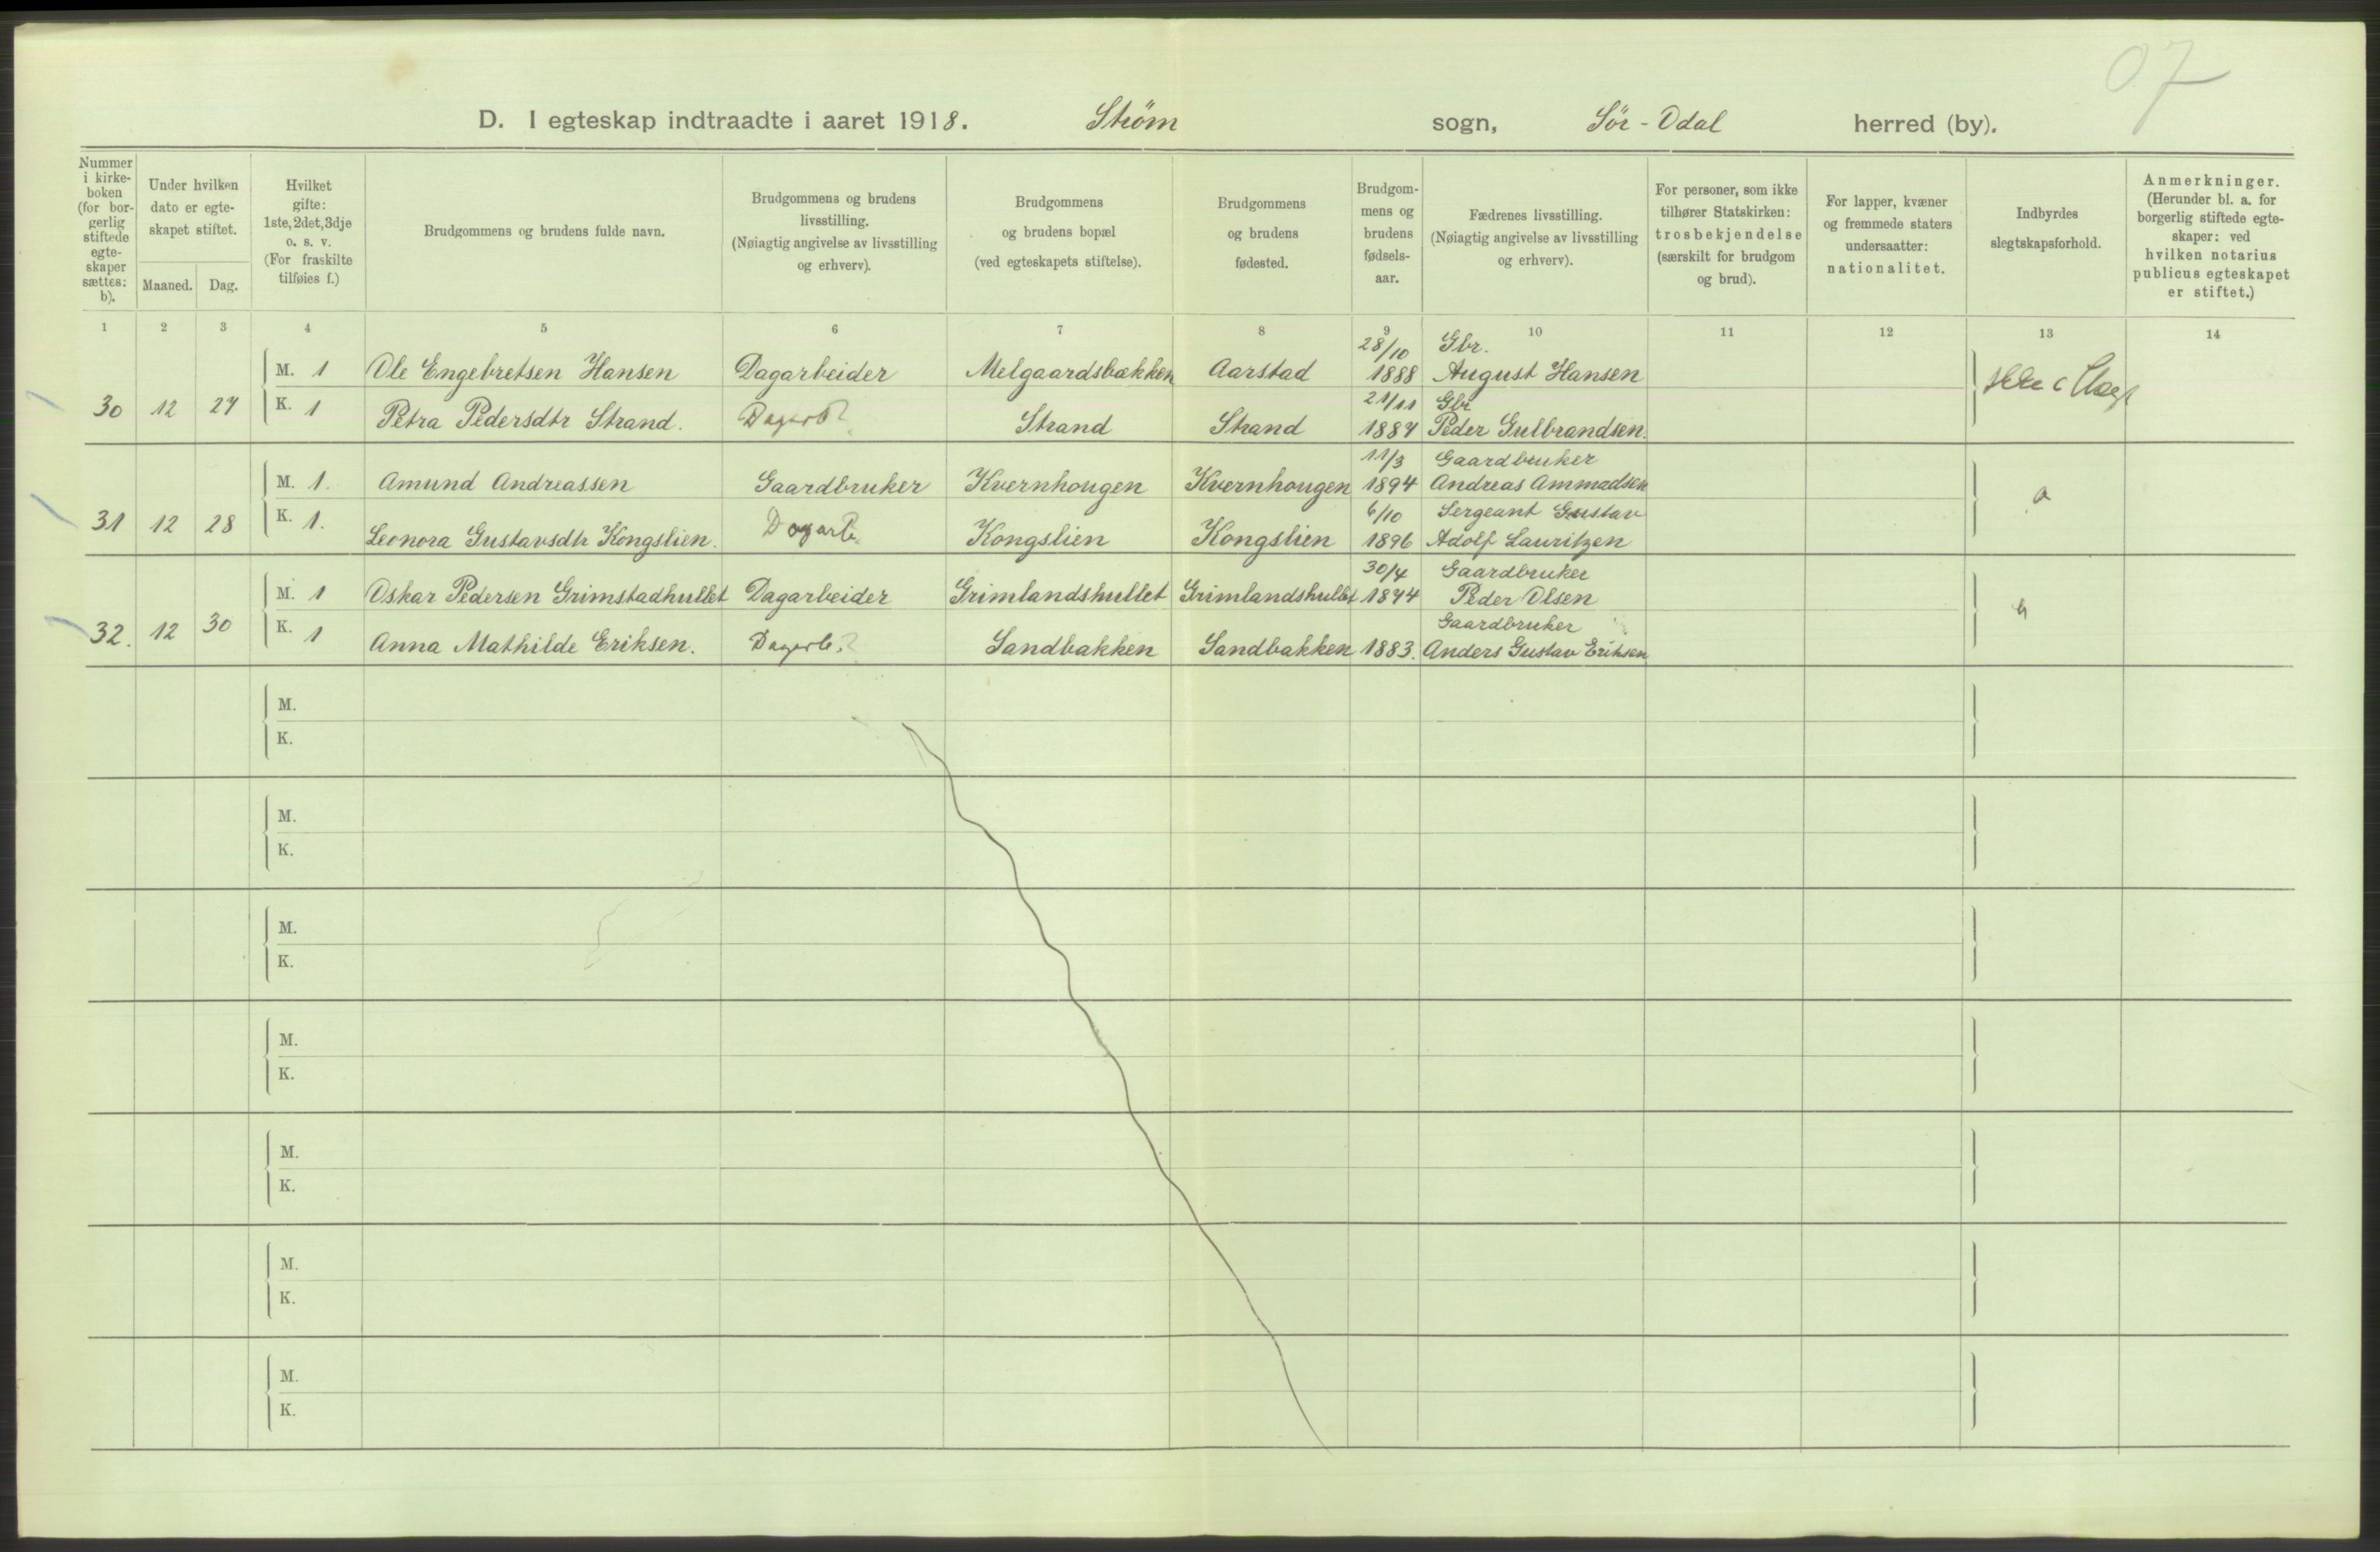 07
D. I egteskap indtraadte i aaret 1918. Strøm sogn, Sør-Odal herred (by).
Nummer i kirkeboken (for borgerlig stiftede egteskaper sættes: b).
Under hvilken dato er egteskapet stiftet.
Maaned. Dag.
Hvilket gifte: 1ste, 2det, 3dje o. s. v. (For fraskilte tilføies f.)
Brudgommens og brudens fulde navn.
Brudgommens og brudens livsstilling. (Nøiagtig angivelse av livsstilling og erhverv).
Brudgommens og brudens bopæl (ved egteskapets stiftelse).
Brudgommens og brudens fødested.
Brudgommens og brudens fødselsaar.
Fædrenes livsstilling. (Nøiagtig angivelse av livsstilling og erhverv).
For personer, som ikke tilhører Statskirken: trosbekjendelse (særskilt for brudgom og brud).
For lapper, kvæner og fremmede staters undersaatter: nationalitet.
Indbyrdes slegtskapsforhold.
Anmerkninger. (Herunder bl. a. for borgerlig stiftede egteskaper: ved hvilken notarius publicus egteskapet er stiftet.)
1 2 3 4 5 6 7 8 9 10 11 12 13 14
28/10 Gbr.
M. 1 Ole Engebretsen Hansen Dagarbeider Melgaardsbækken Aarstad 1888 August Hansen
21/11 Gbr
30 12 27 K. 1 Petra Pedersdtr Strand. Dagarb? Strand Strand 1887 Peder Gulbrandsen.
11/3 Gaardbruker
M. 1. Amund Andreassen Gaardbruker Kvernhougen Kvernhougen 1894 Andreas Ammadsen
6/10 Sergeant Gustav
31 12 28 K. 1. Leonora Gustavsdtr Kongslien. Dagarb. Kongslien Kongslien 1896 Adolf Lauritzen
30/4 Gaardbruker
M. 1 Oskar Pedersen Grimstadhullet Dagarbeider Grimlandshullet Grimlandshullet 1874 Peder Olsen
Gaardbruker
32. 12 30 K. 1 Anna Mathilde Eriksen. Dagarb.? Sandbakken Sandbakken 1883. Anders Gustav Eriksen
M.
K.
M.
K.
M.
K.
M.
K.
M.
K.
M.
K.
M.
K.